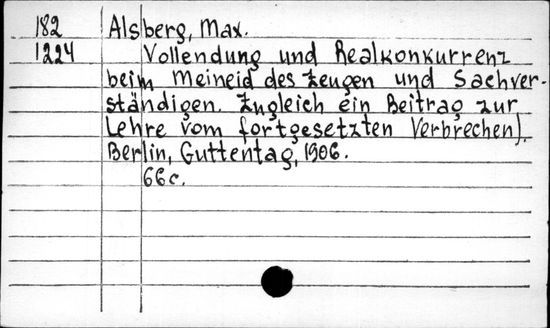 182 Alsberg, Max.
1224 Vollendung und Realkonkurrenz
beim Meineid des Zeugen und Sachver-
ständigen. Zugleich ein Beitrag zur
Lehre vom fortgesetzten Verbrechen).
Berlin, Guttentag, 1906.
66c.